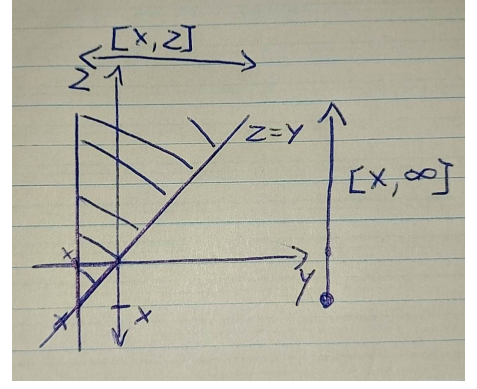 [x,z]
z
z=y
[x,∞]
x
y
x
x